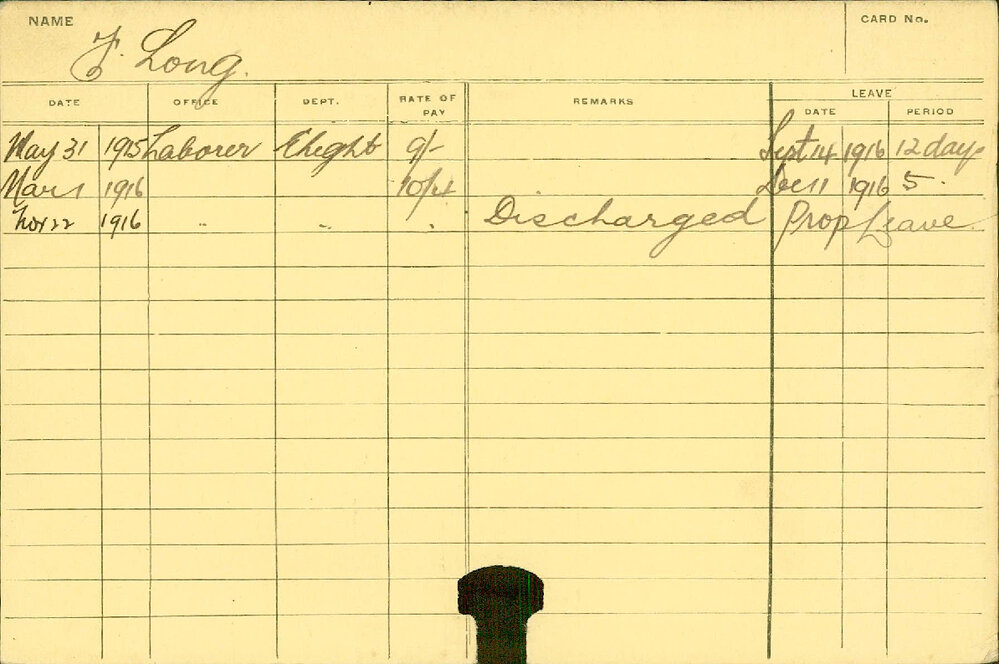 NAME
F. Long.
CARD No.
DATE OFFICE DEPT. RATE OF PAY REMARKS LEAVE
DATE PERIOD
May 31 1915 Laborer Elect 9/- Sept 14 1916 12 days
Mar 1 1916 10/4 Dec 11 1916 5.
Nov 22 1916 " " " Discharged Prop Leave